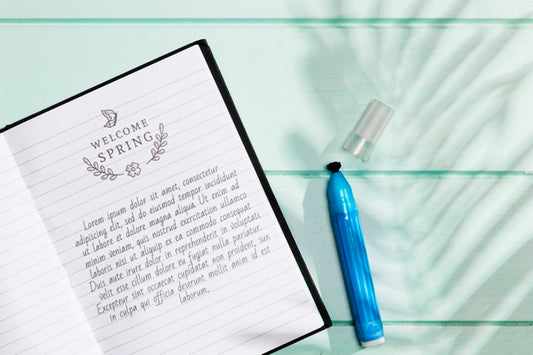 WELCOME
SPRING
Lorem ipsum dolor sit amet, consectetur
adipiscing elit, sed do eiusmod tempor incididunt
ut labore et dolore magna aliqua. Ut enim ad
minim veniam, quis nostrud exercitation ullamco
laboris nisi ut aliquip ex ea commodo consequat.
Duis aute irure dolor in reprehenderit in voluptate
velit esse cillum dolore eu fugiat nulla pariatur.
Excepteur sint occaecat cupidatat non proident, sunt
in culpa qui officia deserunt mollit anim id est
laborum.